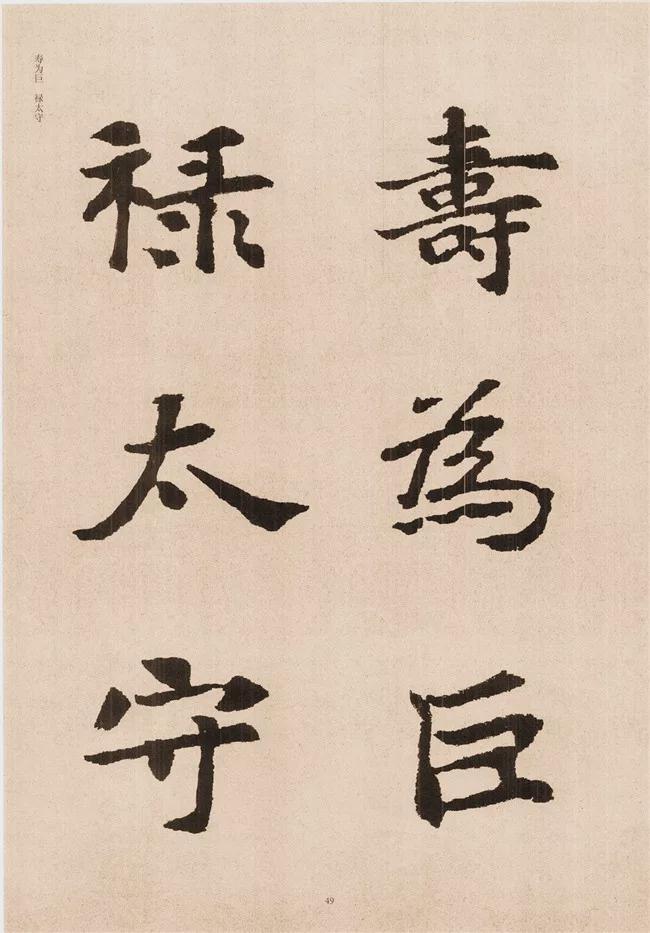 壽為巨
禄太守
寿为巨 禄太守
49